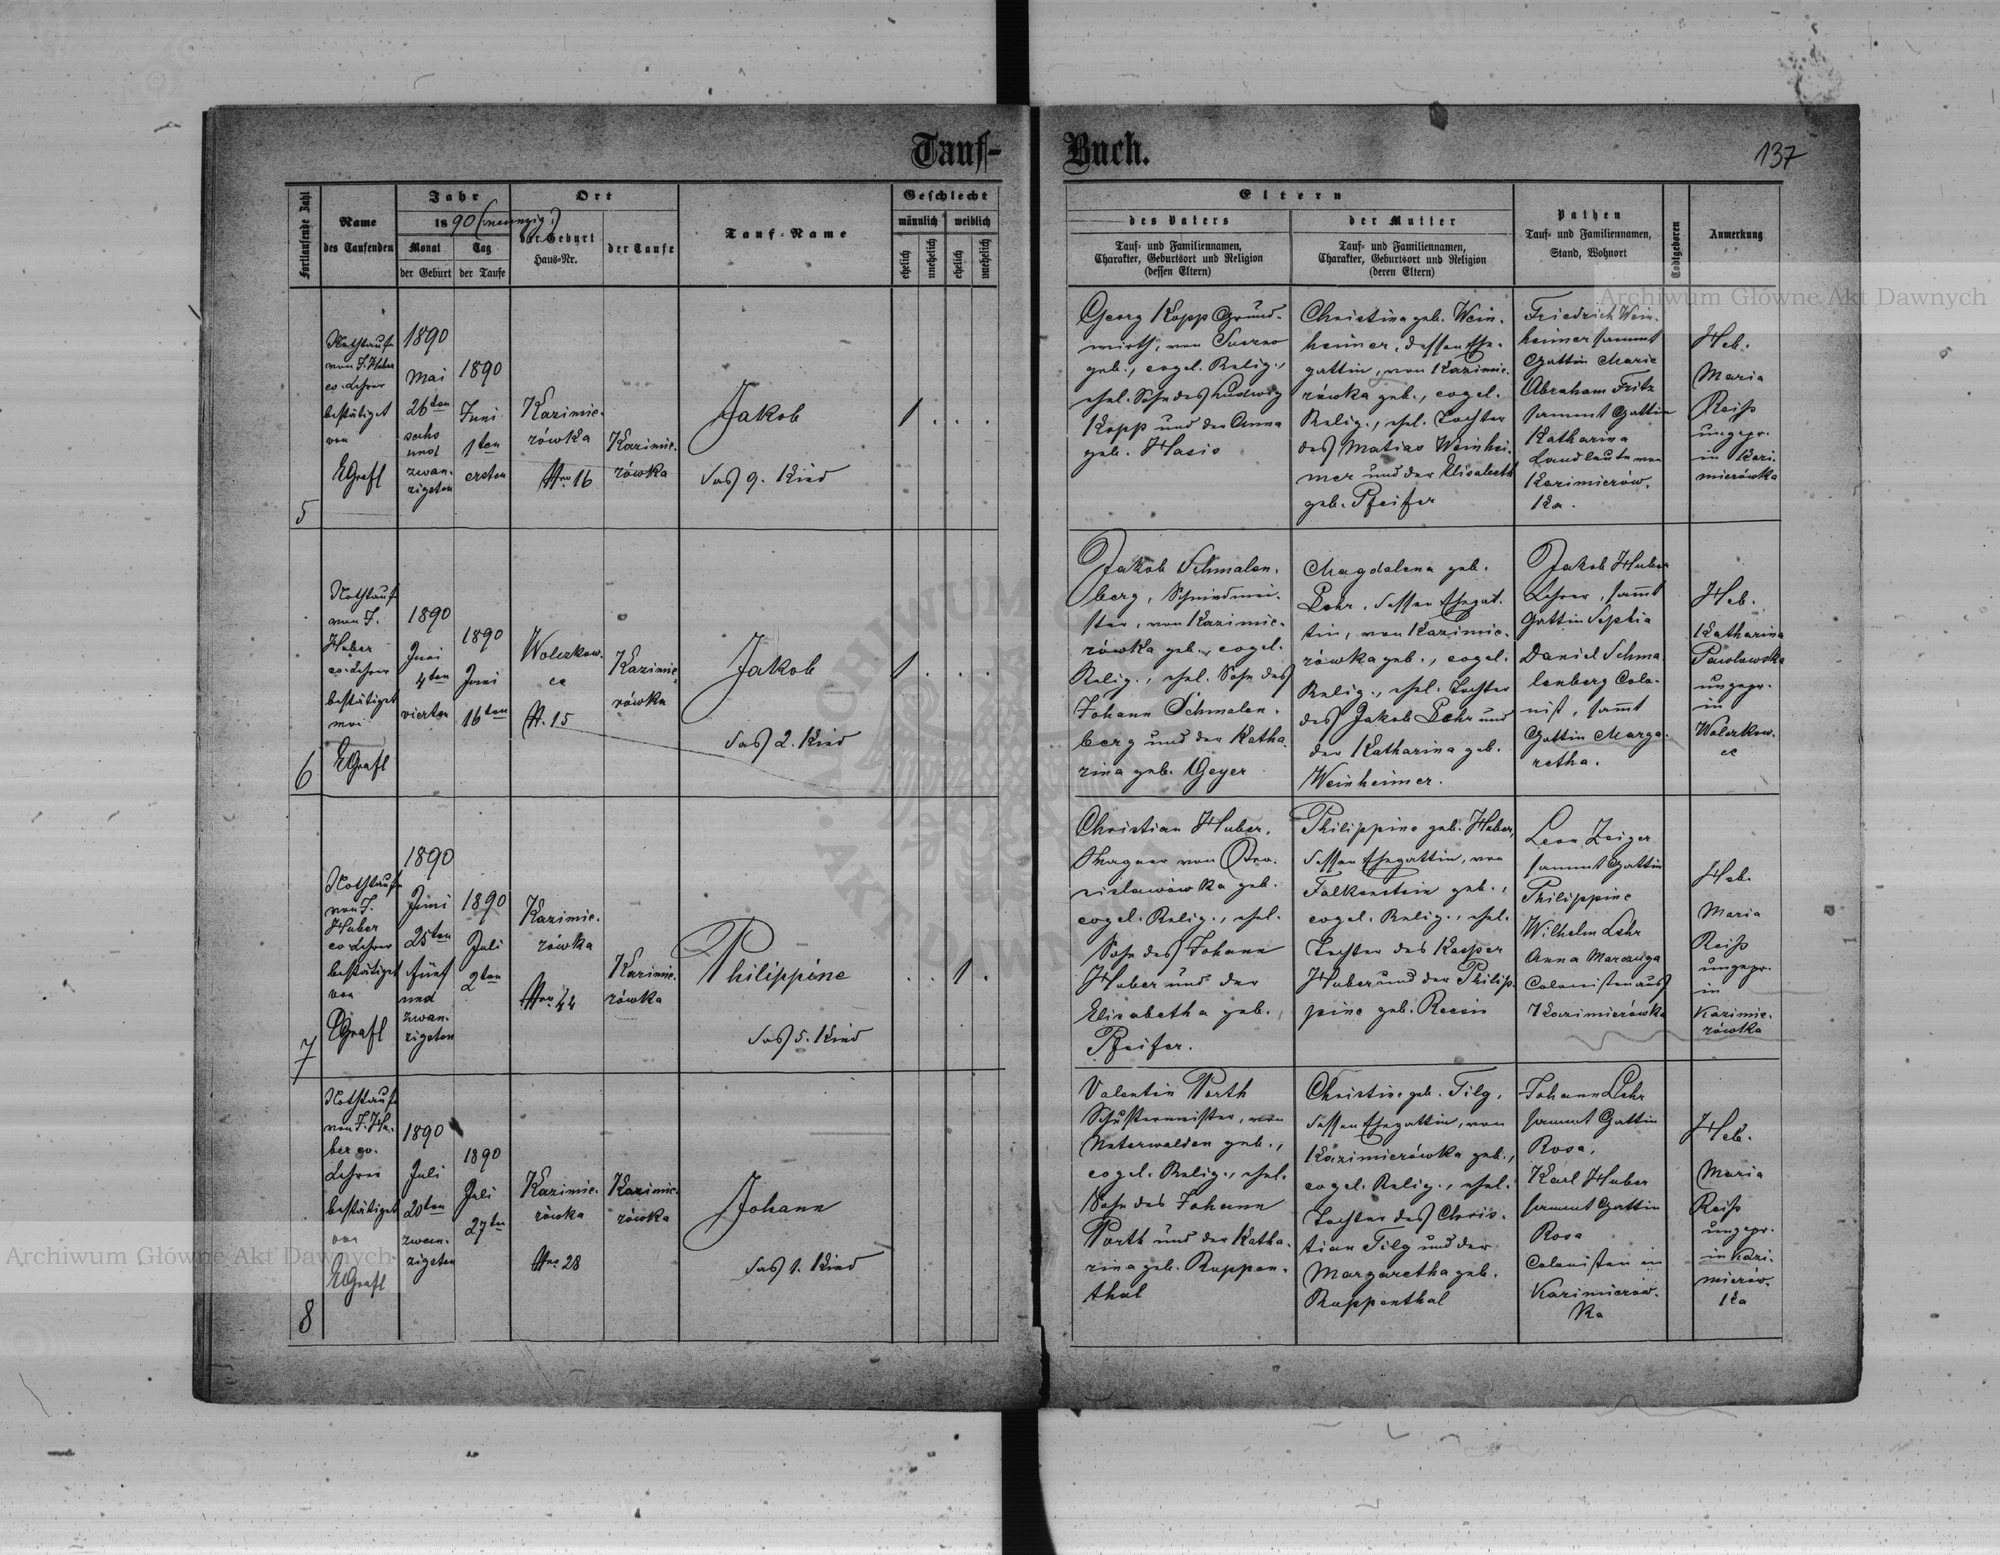 Tauf-
Buch.
137
Fortlaufende Zahl
Name
des Taufenden
Jahr
1890 (neunzig)
Monat
der Geburt
Tag
der Taufe
Ort
der Geburt
Haus-Nr.
der Taufe
Tauf-Name
Geschlecht
männlich
weiblich
ehelich
unehelich
ehelich
unehelich
Eltern
des Vaters
Tauf- und Familiennamen,
Charakter, Geburtsort und Religion
(dessen Eltern)
der Mutter
Tauf- und Familiennamen,
Charakter, Geburtsort und Religion
(deren Eltern)
Pathen
Tauf- und Familiennamen,
Stand, Wohnort
Todtgeboren
Anmerkung
5
Nothtauf
von J. Huber
ev. Lehrer
bestätiget
von
EGrafl
1890
Mai
26ten
sechs
und
zwan-
zigsten
1890
Juni
1ten
ersten
Kazimie-
rówka
Nro 16
Kazimie-
rówka
Jakob
das 9. Kind
1 . . .
Georg Kopp Grund-
wirth, von
geb., evgel. Relig.,
ehel. Sohn des Ludwig
Kopp und der Anna
geb. Hasis
Christina geb. Wein-
heimer, dessen Ehe-
gattin, von Kazimie-
rówka geb., evgel.
Relig., ehel. Tochter
des Matias Weinhei-
mer und der Elisabeth
geb. Pfeifer
Friedrich Wein-
heimer sammt
Gattin Marie
Abraham Fritz
sammt Gattin
Katharina
Landleute von
Kazimierów-
ka.
Heb.
Maria
Reiß
ungepr.
in Kazi-
mierówka
6
Nothtauf
von J.
Huber
ev. Lehrer
bestätiget
von
EGrafl
1890
Juni
4ten
vierten
1890
Juni
16ten
Wolczkow-
ce
N. 15
Kazimie-
rówka
Jakob
das 2. Kind
1 . . .
Jakob Schmalen-
berg, Schmiedmei-
ster, von Kazimie-
rówka geb., evgel.
Relig., ehel. Sohn des
Johann Schmalen-
berg und der Katha-
rina geb. Geyer
Magdalena geb.
Lehr, dessen Ehegat-
tin, von Kazimie-
rówka geb., evgel.
Relig., ehel. Tochter
des Jakob Lehr und
der Katharina geb.
Weinheimer.
Jakob Huber
Lehrer, samt
Gattin Sophia
Daniel Schma-
lenberg Colo-
nist, samt
Gattin Marga-
retha.
Heb.
Katharina
Pawlowska
ungepr.
in
Wolczkow-
ce
7
Nothtauf
von J.
Huber
ev. Lehrer
bestätiget
von
EGrafl
1890
Juni
25ten
fünf
und
zwan-
zigsten
1890
Juli
2ten
Kazimie-
rówka
Nro 44
Kazimie-
rówka
Philippine
das 5. Kind
. . 1 .
Christian Huber,
Wagner von Bro-
nislawówka geb.
evgel. Relig., ehel.
Sohn des Johann
Huber und der
Elisabetha geb.
Pfeifer.
Philippine geb. Huber,
dessen Ehegattin, von
Falkenstein geb.,
evgel. Relig., ehel.
Tochter des Kasper
Huber und der Philip-
pine geb.
Leon Zeiger
sammt Gattin
Philippine
Wilhelm Lehr
Anna
Colonisten aus
Kazimierówka
Heb.
Maria
Reiß
ungepr.
in
Kazimie-
rówka
8
Nothtauf
von J. Hu-
ber ev.
Lehrer
bestätiget
von
EGrafl
1890
Juli
20ten
zwan-
zigsten
1890
Juli
27ten
Kazimie-
rówka
Nro 28
Kazimie-
rówka
Johann
das 1. Kind
Valentin Porth
Schustermeister, von
Unterwalden geb.,
evgel. Relig., ehel.
Sohn des Johann
Porth und der Katha-
rina geb. Ruppen-
thal
Christine geb. Filg,
dessen Ehegattin, von
Kazimierówka geb.,
evgel. Relig., ehel.
Tochter des Chris-
tian Filg und der
Margaretha geb.
Ruppenthal
Johann Lehr
sammt Gattin
Rosa,
Karl Huber
sammt Gattin
Rosa
Colonisten in
Kazimierów-
ka
Heb.
Maria
Reiß
ungepr.
in Kazi-
mierów-
ka
Archiwum Główne Akt Dawnych
Archiwum Główne Akt Dawnych